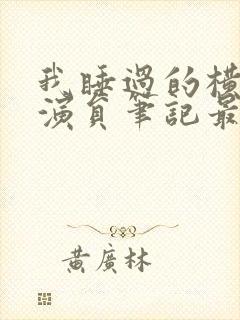 我睡過的橫
演員筆記最
黃廣林